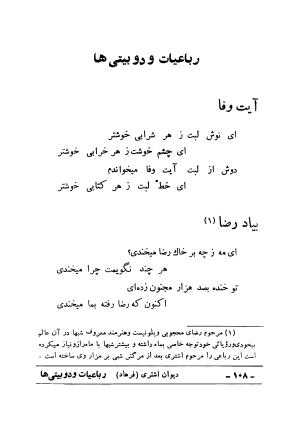 رباعیات و دوبیتی‌ها
آیت وفا
ای نوش لبت ز هر شرابی خوشتر
ای چشم خوشت ز هر خرابی خوشتر
دوش از لبت آیت وفا میخواندم
ای خطّ لبت ز هر کتابی خوشتر
بیاد رضا (۱)
ای مه ز چه بر خاک رضا میخندی؟
هر چند نگویمت چرا میخندی
تو خنده بصد هزار مجنون زده‌ای
اکنون که رضا رفته بما میخندی
(۱) مرحوم رضای محجوبی ویلونیست وهنرمند معروف شبها در آن عالم
بیخودی ورؤیائی خودتوجه خاصی بماه داشته و بیشترشبها با ماه‌رازونیاز میکرده
است این رباعی را مرحوم اشتری بعد از مرگش شبی بر مزار وی ساخته است .
- ۱۰۸ - دیوان اشتری (فرهاد) رباعیات ودوبیتی‌ها